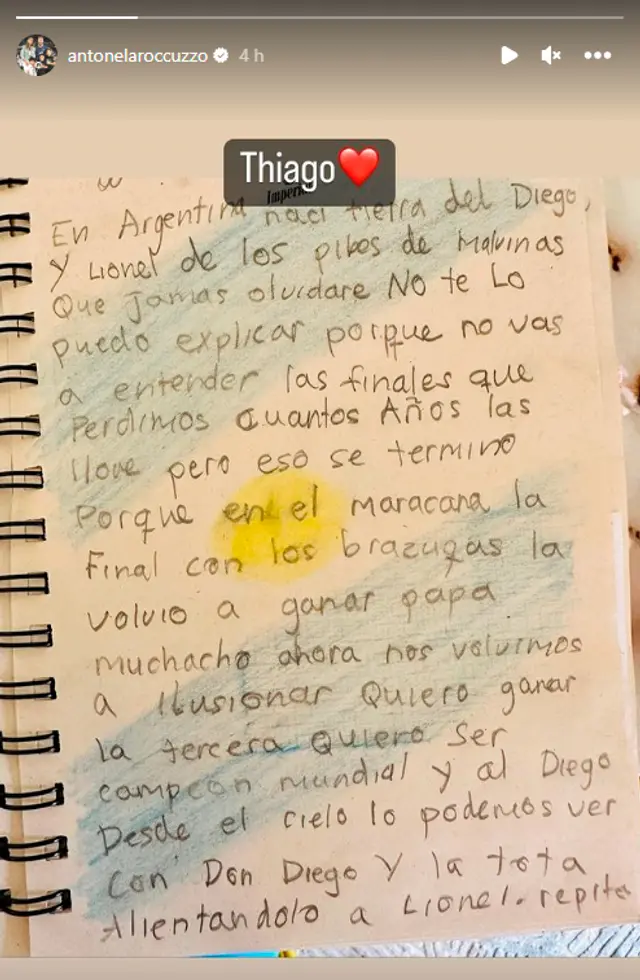 antonelaroccuzzo 4 h
Thiago❤️
En Argentina naci tierra del Diego,
Y Lionel de los pibes de Malvinas
Que jamas olvidare No te Lo
puedo explicar porque no vas
a entender las finales que
Perdimos cuantos Años las
llore pero eso se termino
Porque en el maracana la
Final con los brazugas la
volvio a ganar papa
muchacho ahora nos volvimos
a Ilusionar Quiero ganar
la tercera Quiero Ser
campeon mundial y al Diego
Desde el cielo lo podemos ver
Con Don Diego Y la tota
Alientandolo a Lionel. repite